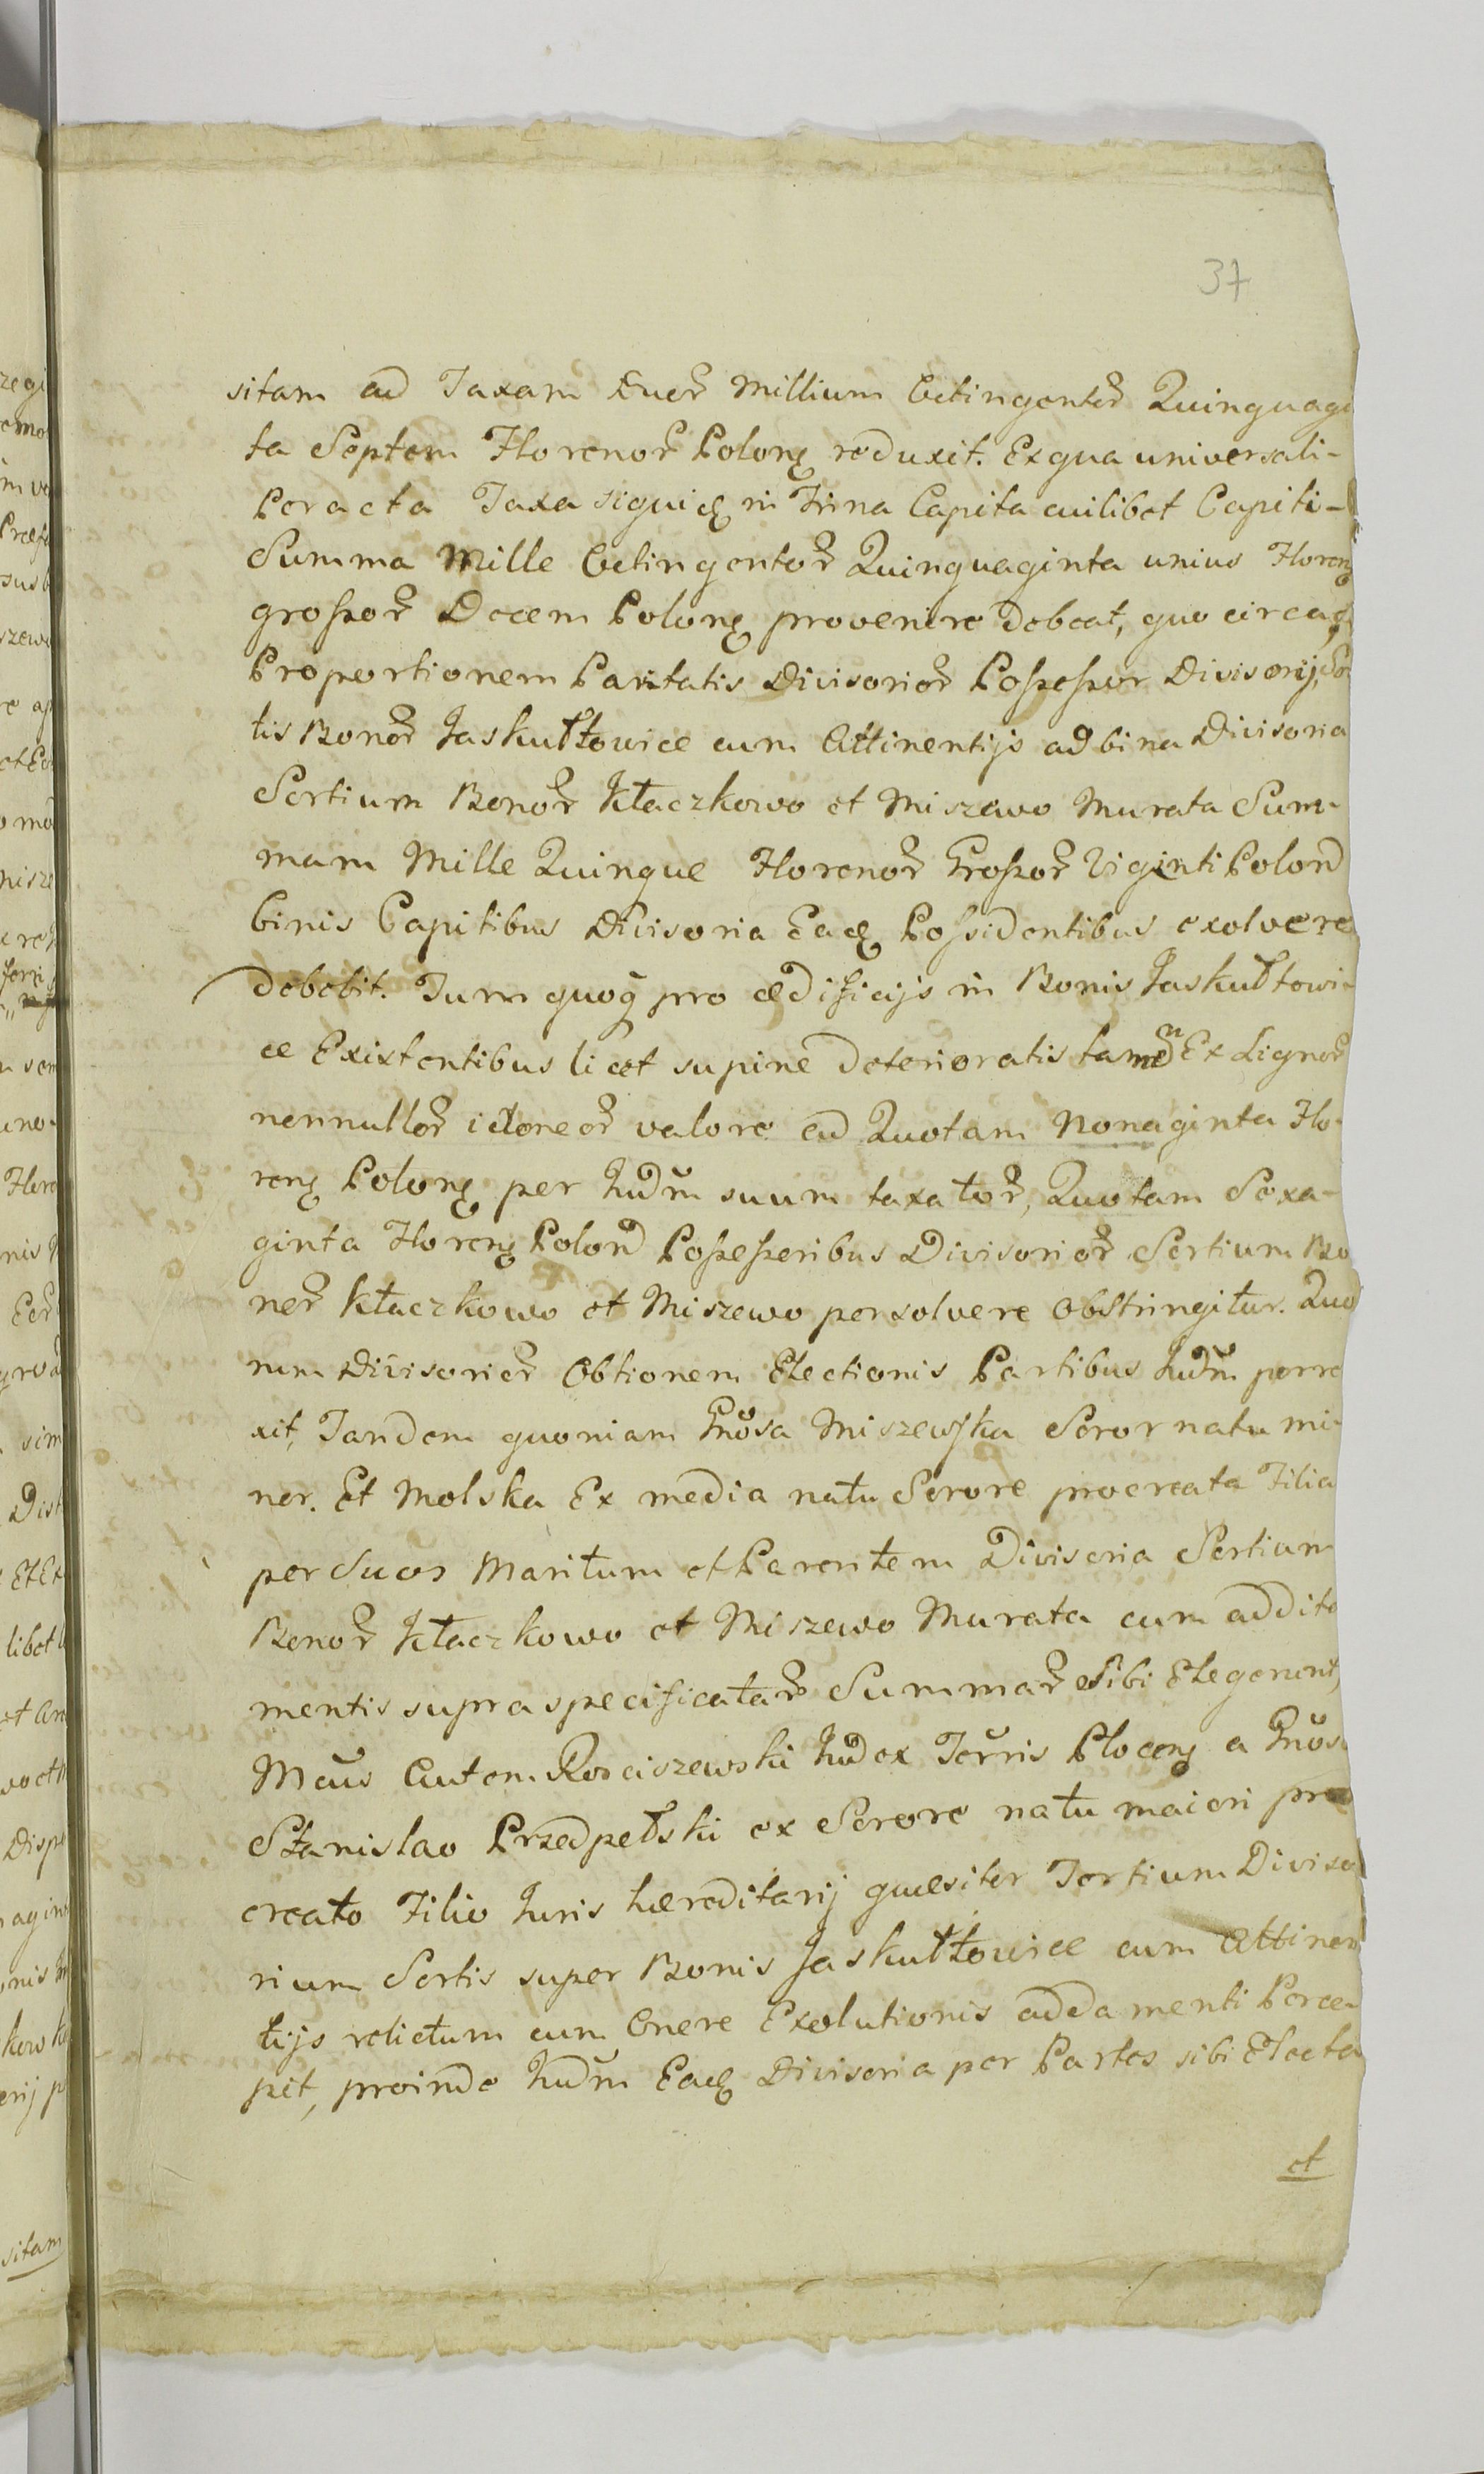 37
sitam ad Taxam Duor Millium Octingentor Quinquagi
ta Septem Florenor Polonę reduxit. Ex qua universali-
Peracta Taxa siquidę in Trina Capita cuilibet Capiti-
Summa Mille Octingentor Quinquaginta unius Florenę
großor Decem Polonę provenire debeat, quo circa
Proportionem Paritatis Divisorior Poßeßor Divisorij, Sor
tis Bonor Jaskułłowice cum Attinentijs ad bina Divisoria
Sortium Bonor Kłaczkowo et Miszewo Murata Sum-
mam Mille Quinque Florenor Großor Viginti Polon
binis Capitibus Divisoria Eadę Poßidentibus exolvere
debebit. Tum quoq pro ædificijs in Bonis Jaskułłowi-
ce Existentibus licet supine deterioratis tamen Ex Lignor
nonnullor idoneor valore ad Quotam Nonaginta Flo-
renę Polonę per Judm suum taxator, Quotam Sexa-
ginta Florenę Polon Poßeßoribus Divisorior Sortium Bo
nor Kłaczkowo et Miszewo persolvere obstringitur. Quo
rum Divisorior Obtionem Electionis Partibus Judm porre
xit, Tandem quoniam Gnosa Miszewska Soror natu mi-
nor. Et Molska Ex media natu Sorore procreata Filia
per Suos Maritum et Parentem Divisoria Sortium
Bonor Kłaczkowo et Miszewo Murata cum addita
mentis supra specificatar Summar Sibi Elegerent,
Mcus Autem Rosciszewski Judex Terris Plocenę a Gnoso
Stanislao Przedpełski ex Sorore natu maiori pro
creato Filio Juris hæreditarij quæsitor Tertium Diviso
rium Sortis super Bonis Jaskułłowice cum Attinen
tijs relictum cum Onere Exolutionis addamenti Perce-
pit, proinde Judm Eadę Divisoria per Partes sibi Electa
et
sitam